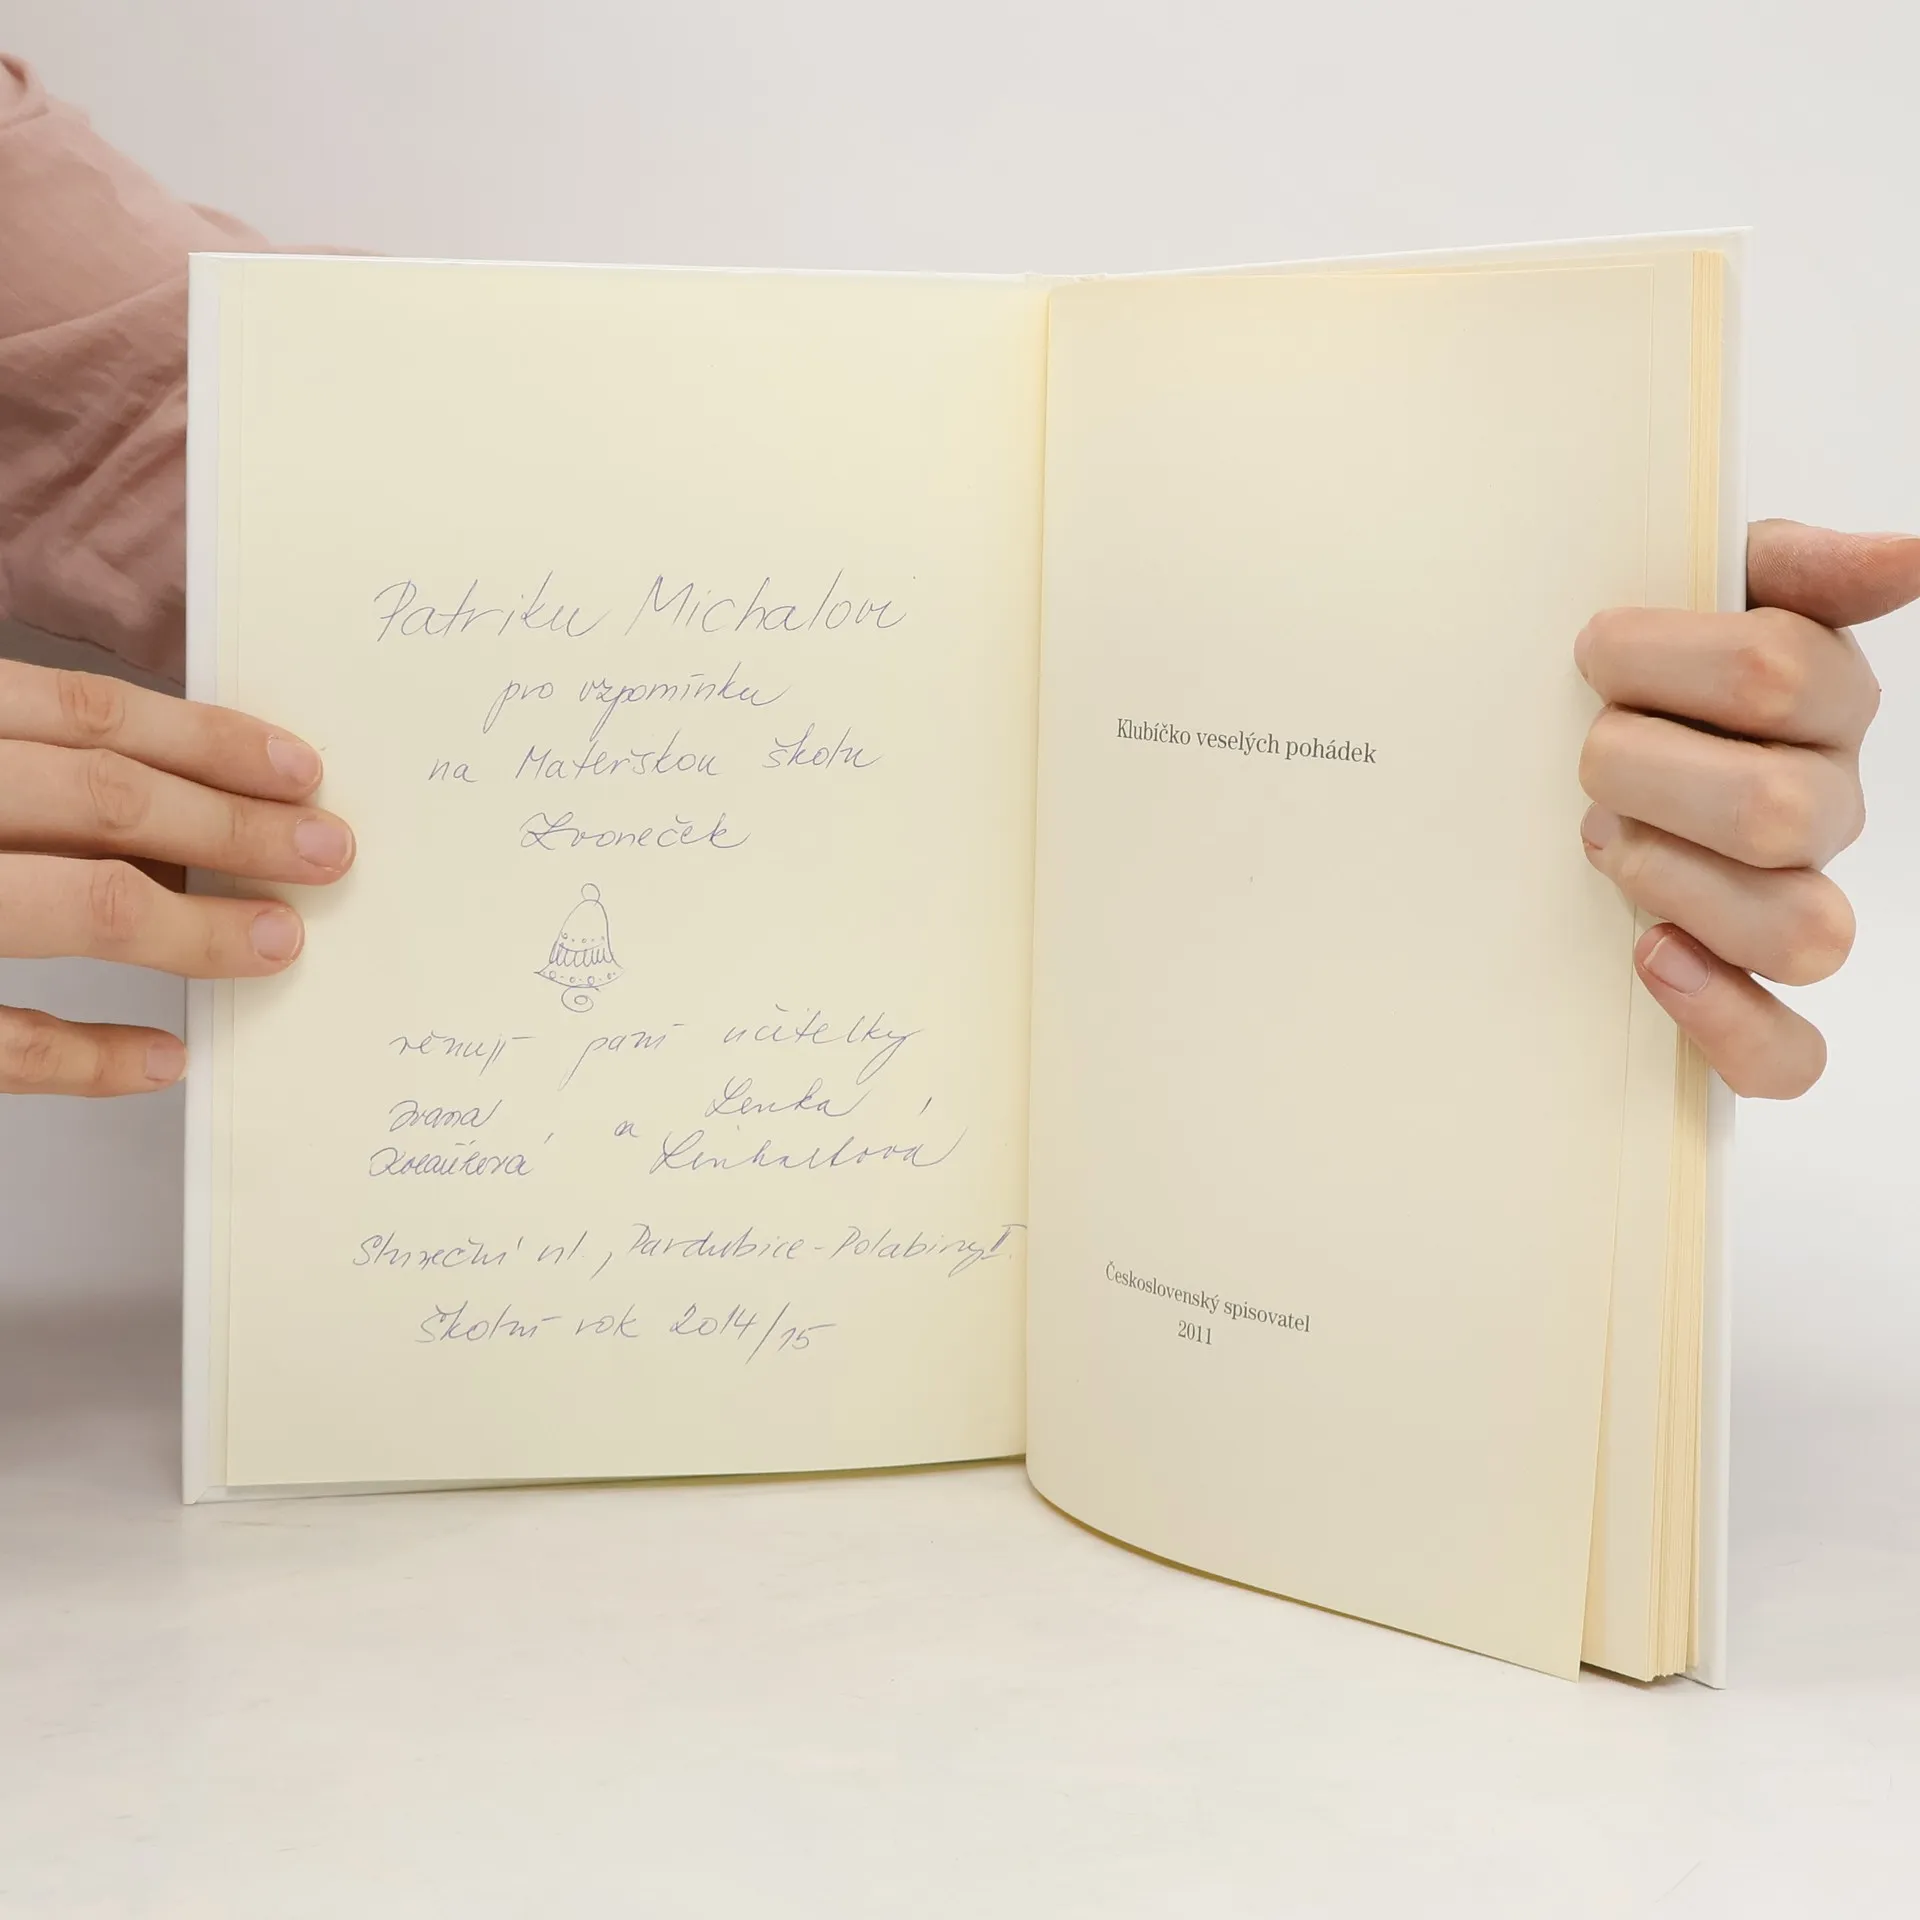 Patriku Michalovi
pro vzpomínku
na Mateřskou školu
Zvoneček
věnují paní učitelky
Ivana
Lenka
, a
Linhartová
Slunečná ul., Pardubice-Polabiny II.
Školní rok 2014/15
Klubíčko veselých pohádek
Československý spisovatel
2011